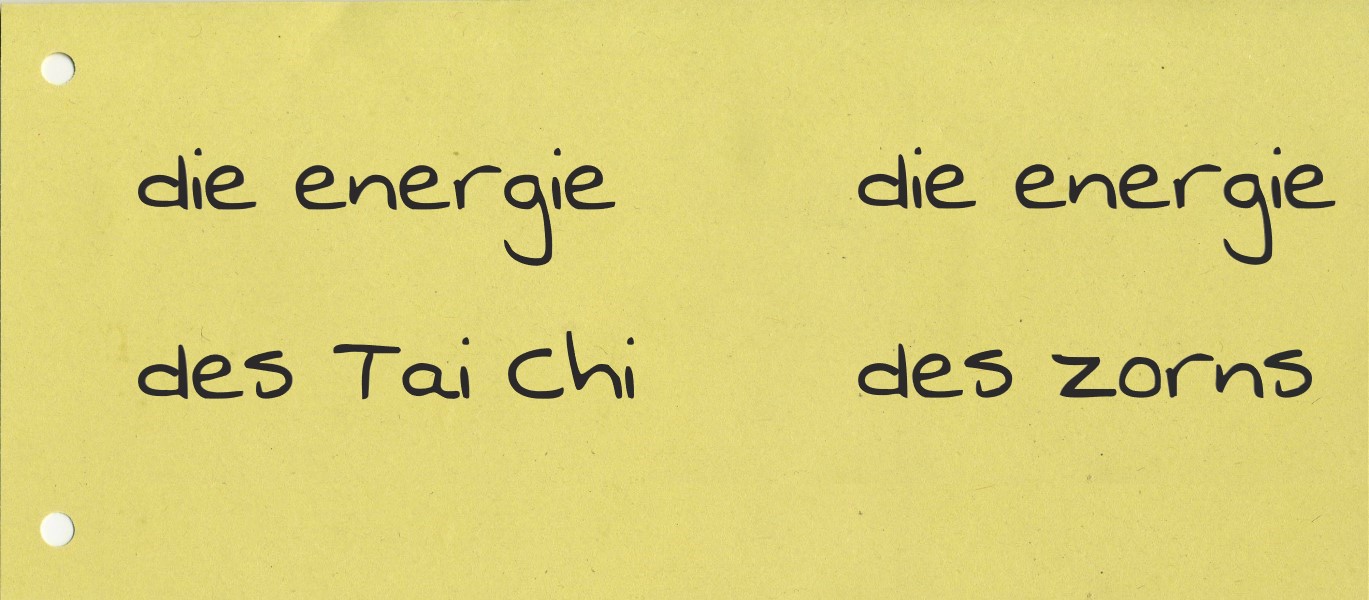 die energie
des Tai Chi
die energie
des zorns